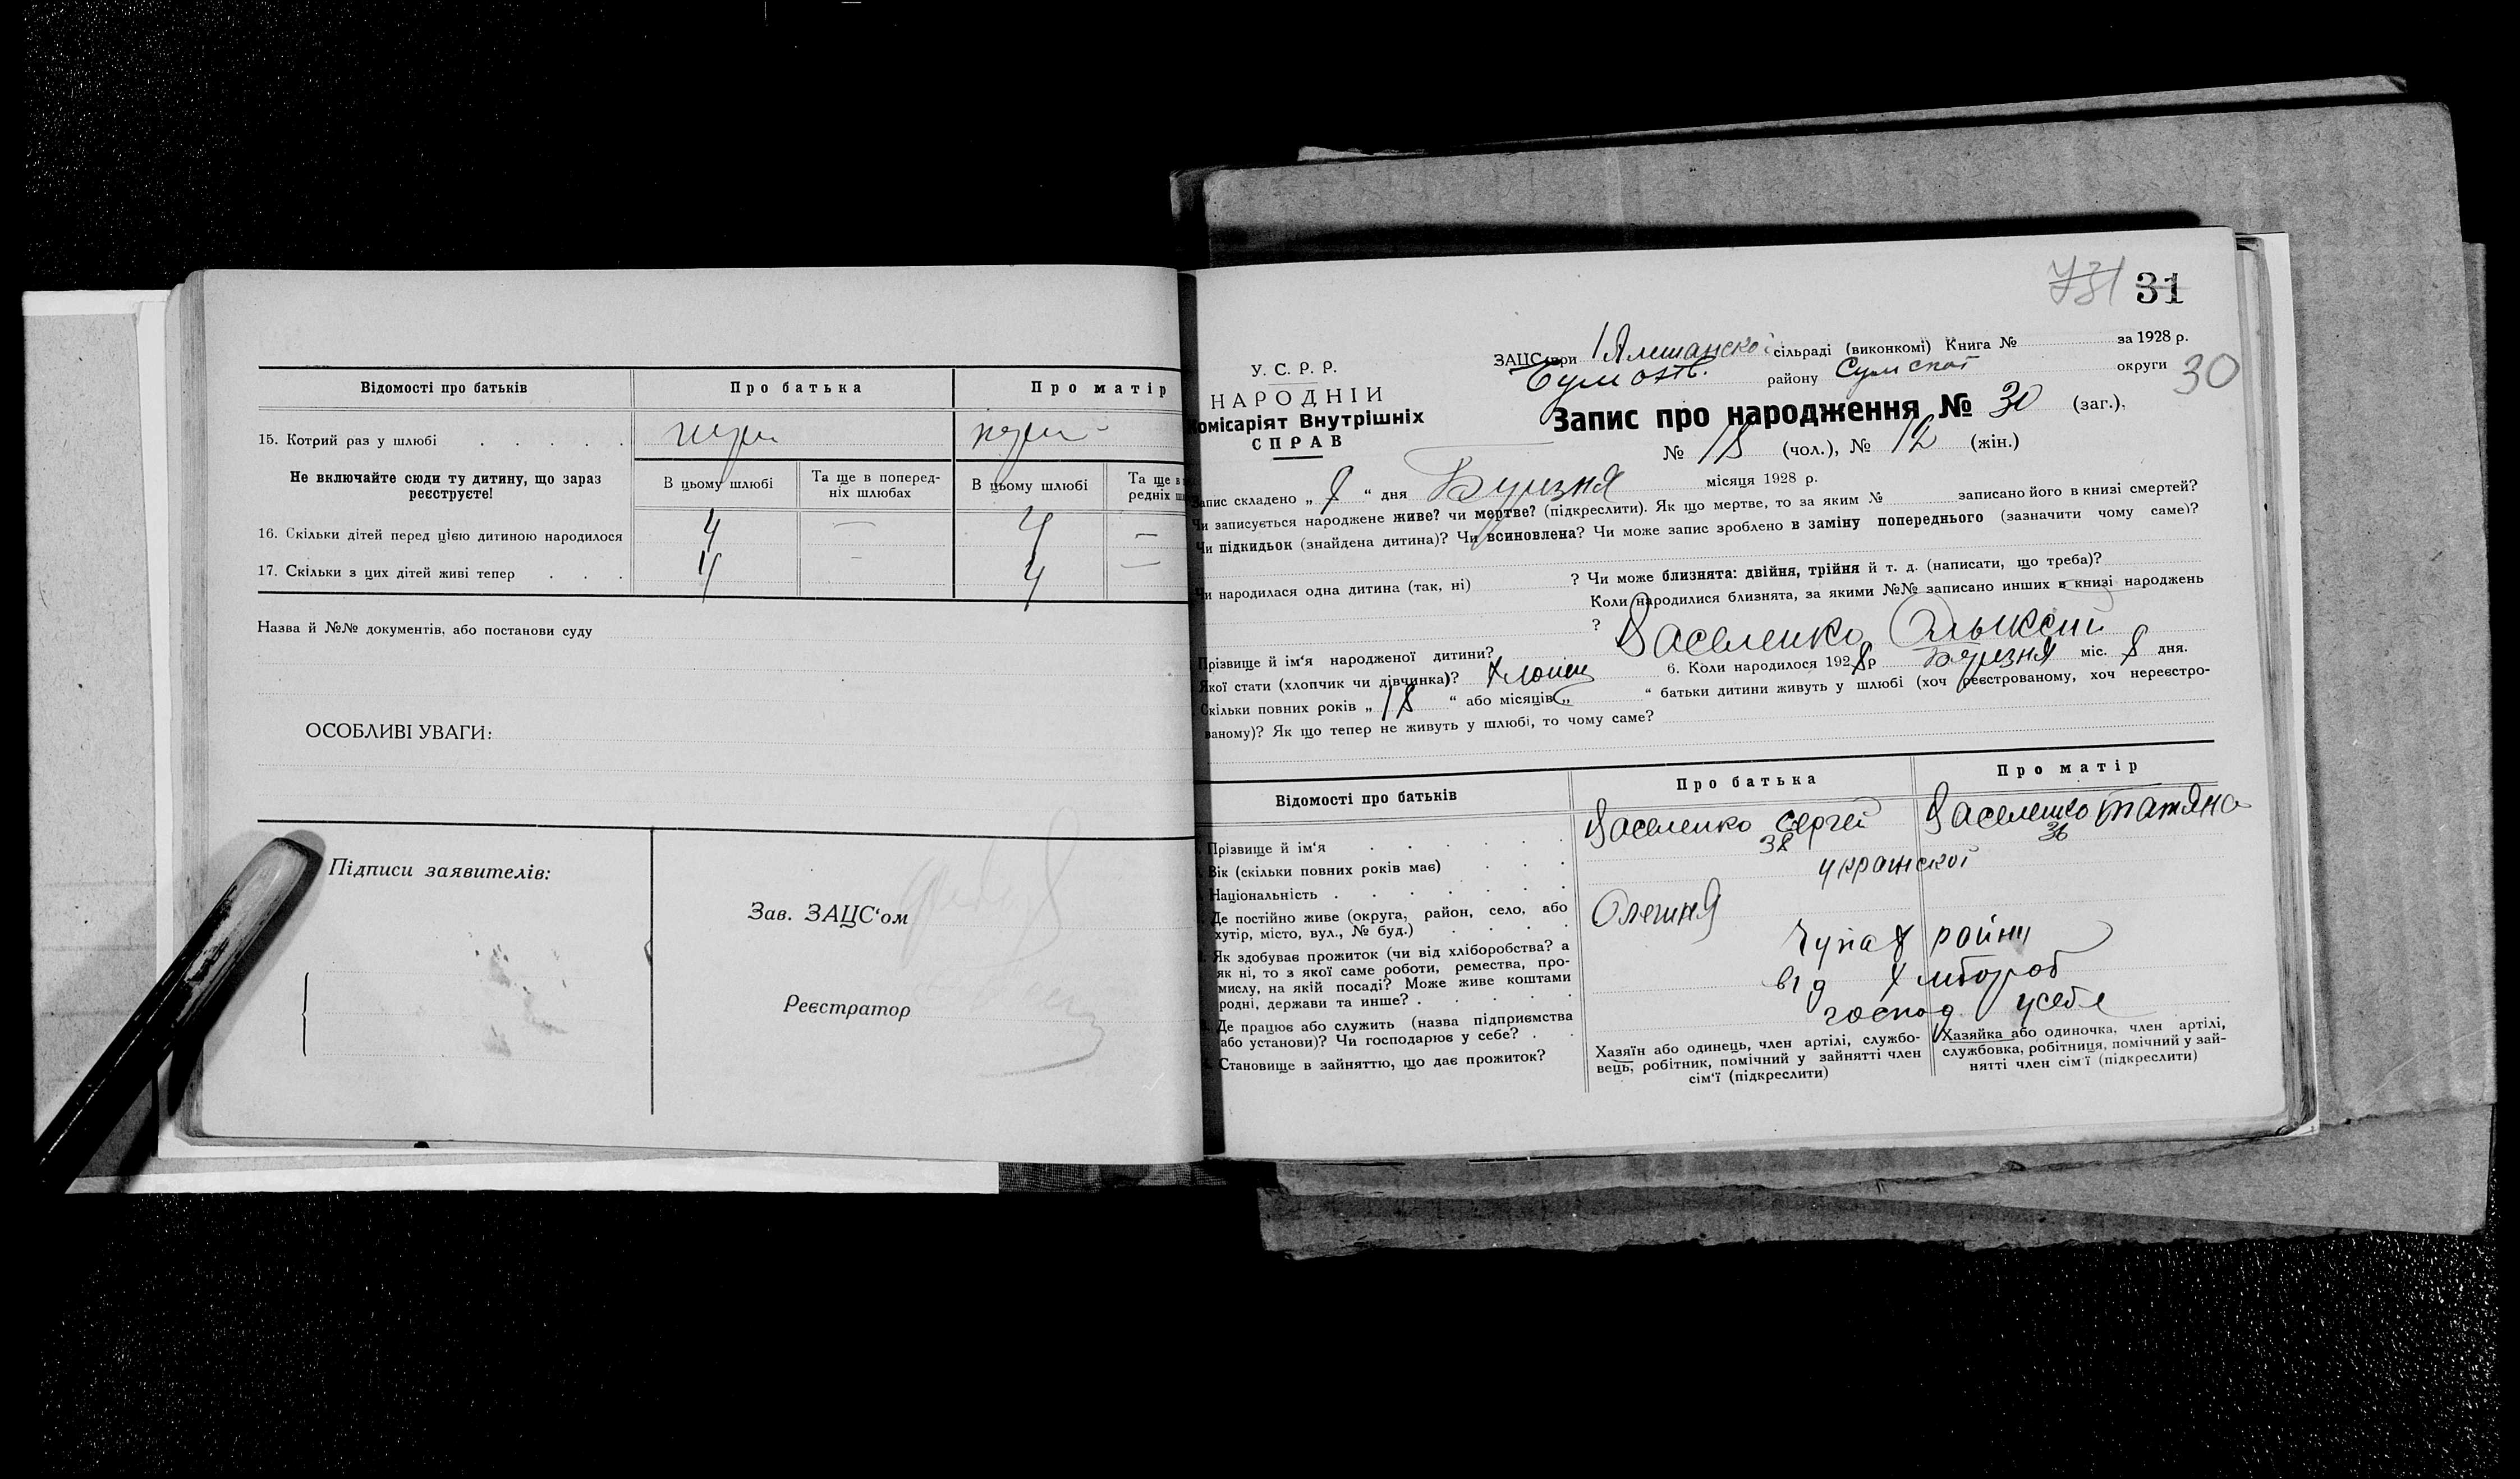 Відомості про батьків
Про батька
Про матір
15. Котрий раз у шлюбі
Не включайте сюди ту дитину, що зараз
реєструєте!
В цьому шлюбі
Та ще в поперед-
ніх шлюбах
В цьому шлюбі
Та ще в
редніх
16. Скільки дітей перед цією дитиною народилося 4 — 4 —
17. Скільки з цих дітей живі тепер 4 - 4 —
Назва й №№ документів, або постанови суду
ОСОБЛИВІ УВАГИ:
Підписи заявителів:
Зав. ЗАЦС'ом
Реєстратор
31
У. С. Р. Р.
НАРОДНІЙ
Комісаріят Внутрішніх
СПРАВ
ЗАЦС при сільраді (виконкомі) Книга № за 1928 р.
району Сумской округи 30
Запис про народження № 30 (заг.),
№ 18 (чол.), № 12 (жін.)
Запис складено „ “ дня Бурезня місяця 1928 р.
Чи записується народжене живе? чи мертве? (підкреслити). Як що мертве, то за яким № записано його в книзі смертей?
Чи підкидьок (знайдена дитина)? Чи всиновлена? Чи може запис зроблено в заміну попереднього (зазначити чому саме)?
Чи народилася одна дитина (так, ні) ? Чи може близнята: двійня, трійня й т. д. (написати, що треба)?
Коли народилися близнята, за якими №№ записано инших в книзі народжень
?
Прізвище й ім'я народженої дитини? Васеленко Олыксій
Якої стати (хлопчик чи дівчинка)? 6. Коли народилося 1928 р Бурезня міс. 8 дня.
Скільки повних років „ 18 “ або місяців „ “ батьки дитини живуть у шлюбі (хоч реєстрованому, хоч нереєстро-
ваному)? Як що тепер не живуть у шлюбі, то чому саме?
Відомості про батьків
Про батька
Про матір
Прізвище й ім'я Васеленко Сергей Васеленко Татяна
Вік (скільки повних років має) 38 36
Національність
Де постійно живе (округа, район, село, або
хутір, місто, вул., № буд.) Олешня
Як здобуває прожиток (чи від хліборобства? а
як ні, то з якої саме роботи, ремества, про-
мислу, на якій посаді? Може живе коштами
родні, держави та инше?
від
Де працює або служить (назва підприємства
або установи)? Чи господарює у себе?
господ усебе
Становище в зайняттю, що дає прожиток?
Хазяїн або одинець, член артілі, службо-
вець, робітник, помічний у зайнятті член
сім'ї (підкреслити)
Хазяйка або одиночка, член артілі,
службовка, робітниця, помічний у зай-
нятті член сім'ї (підкреслити)